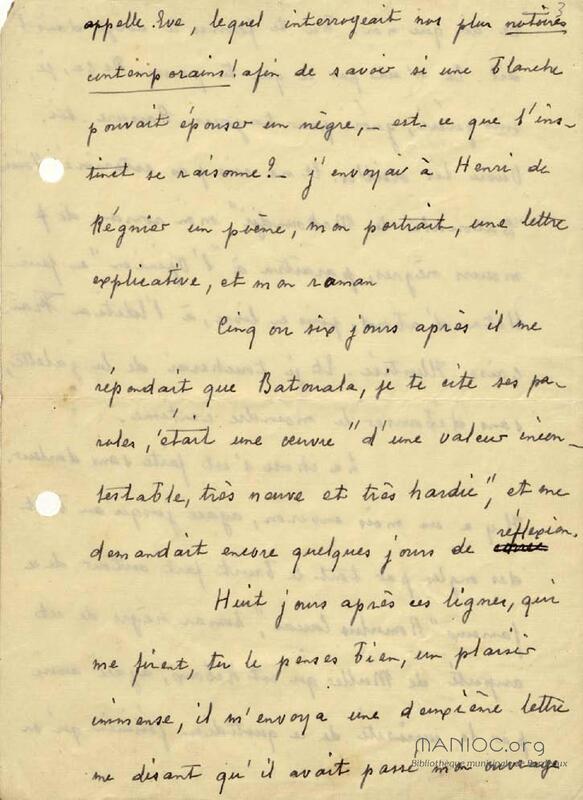 3
appelle Eve, lequel interrogeait nos plus notoires
contemporains! afin de savoir si une blanche
pouvait épouser un nègre, – est-ce que l'ins-
tinct se raisonne? – j'envoyai à Henri de
Régnier un poème, mon portrait, une lettre
explicative, et mon roman
Cinq ou six jours après il me
répondait que Batouala, je te cite ses pa-
roles, c'était une œuvre "d'une valeur incon-
testable, très neuve et très hardie", et me
demandait encore quelques jours de réflexion.
Huit jours après ces lignes, qui
me firent, tu le penses bien, un plaisir
immense, il m'envoya une deuxième lettre
me disant qu'il avait passé mon ouvrage
MANIOC.org
Bibliothèque municipale de Bordeaux